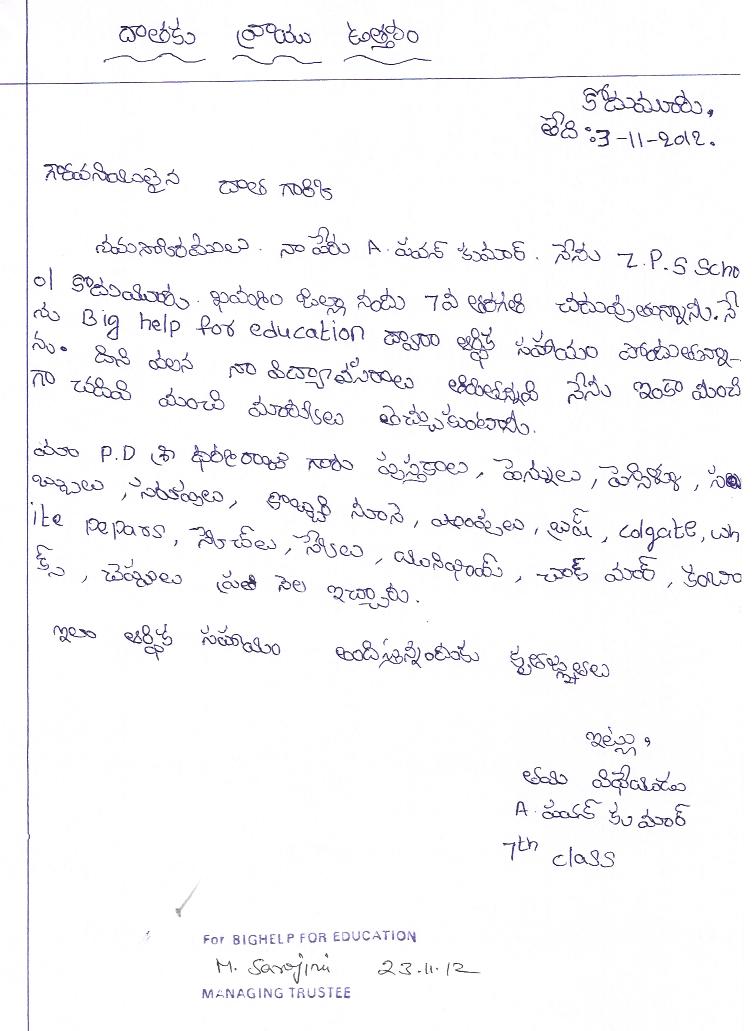 దాతకు వ్రాయు ఉత్తరం
కోదుమూరు,
తేది :3-11-2012.
గౌరవనియులైన దాత గారికి
నమసాకారములు. నా పేరు A. పవన్ కుమార్. నేను Z.P.S Scho
ol కోదుమూరు. ఖమ్మం జిల్లా నందు 7వ తరగతి చదువుతున్నాను. నే
ను Big help for education ద్వారా ఆర్థిక సహాయం పొందుతున్నా-
ను. దీని వలన నా విద్యావసరాలు తీరుతున్నవి నేను ఇంకా మంచి
గా చదివి మంచి మార్కులు తెచ్చుకుంటాను.
మా P.D శ్రీ గారు పుస్తకాలు, పెన్నులు, పెన్సిళ్ళు,
సబ్బులు, కొబ్బరి నూనె, షాంపులు, బ్రష్, colgate, wh
ite pepars, స్కెచ్‌లు, స్కేలు, యునిఫాయ్, చార్ట్,
క్స్, చెప్పులు ప్రతి నెల ఇచ్చారు.
ఇలా ఆర్థిక సహాయం అందిస్తున్నందుకు కృతజ్ఞతలు
ఇట్లు,
తమ విధేయుడు
A. పవన్ కుమార్
7th class
For BIGHELP FOR EDUCATION
M. Sarojini 23.11.12
MANAGING TRUSTEE